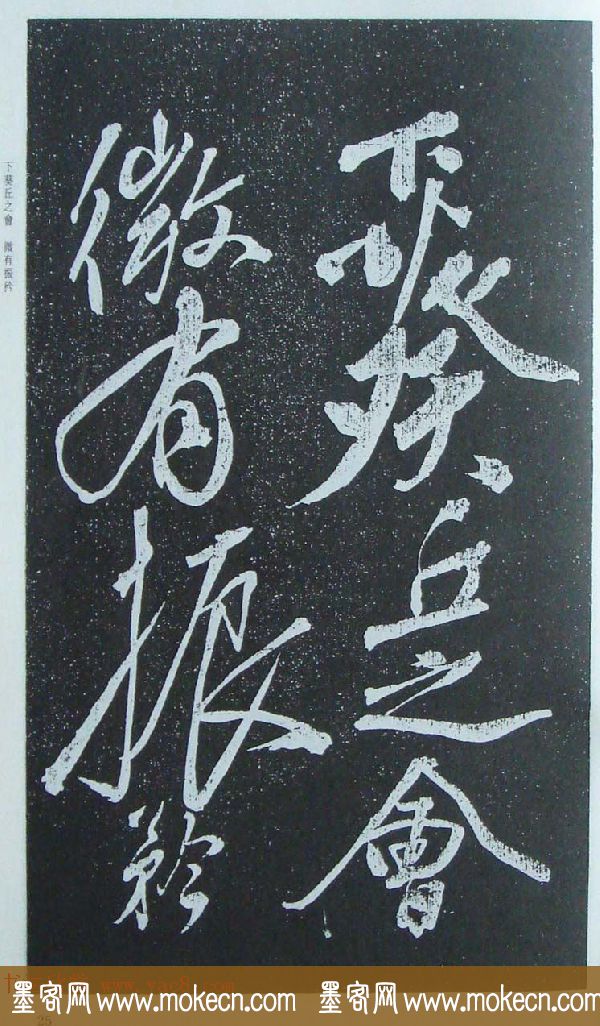 下葵丘之會
微有振矜
下葵丘之會 微有振矜
www.yac8.com
25
墨客网 www.mokecn.com 墨客网 www.mokecn.com